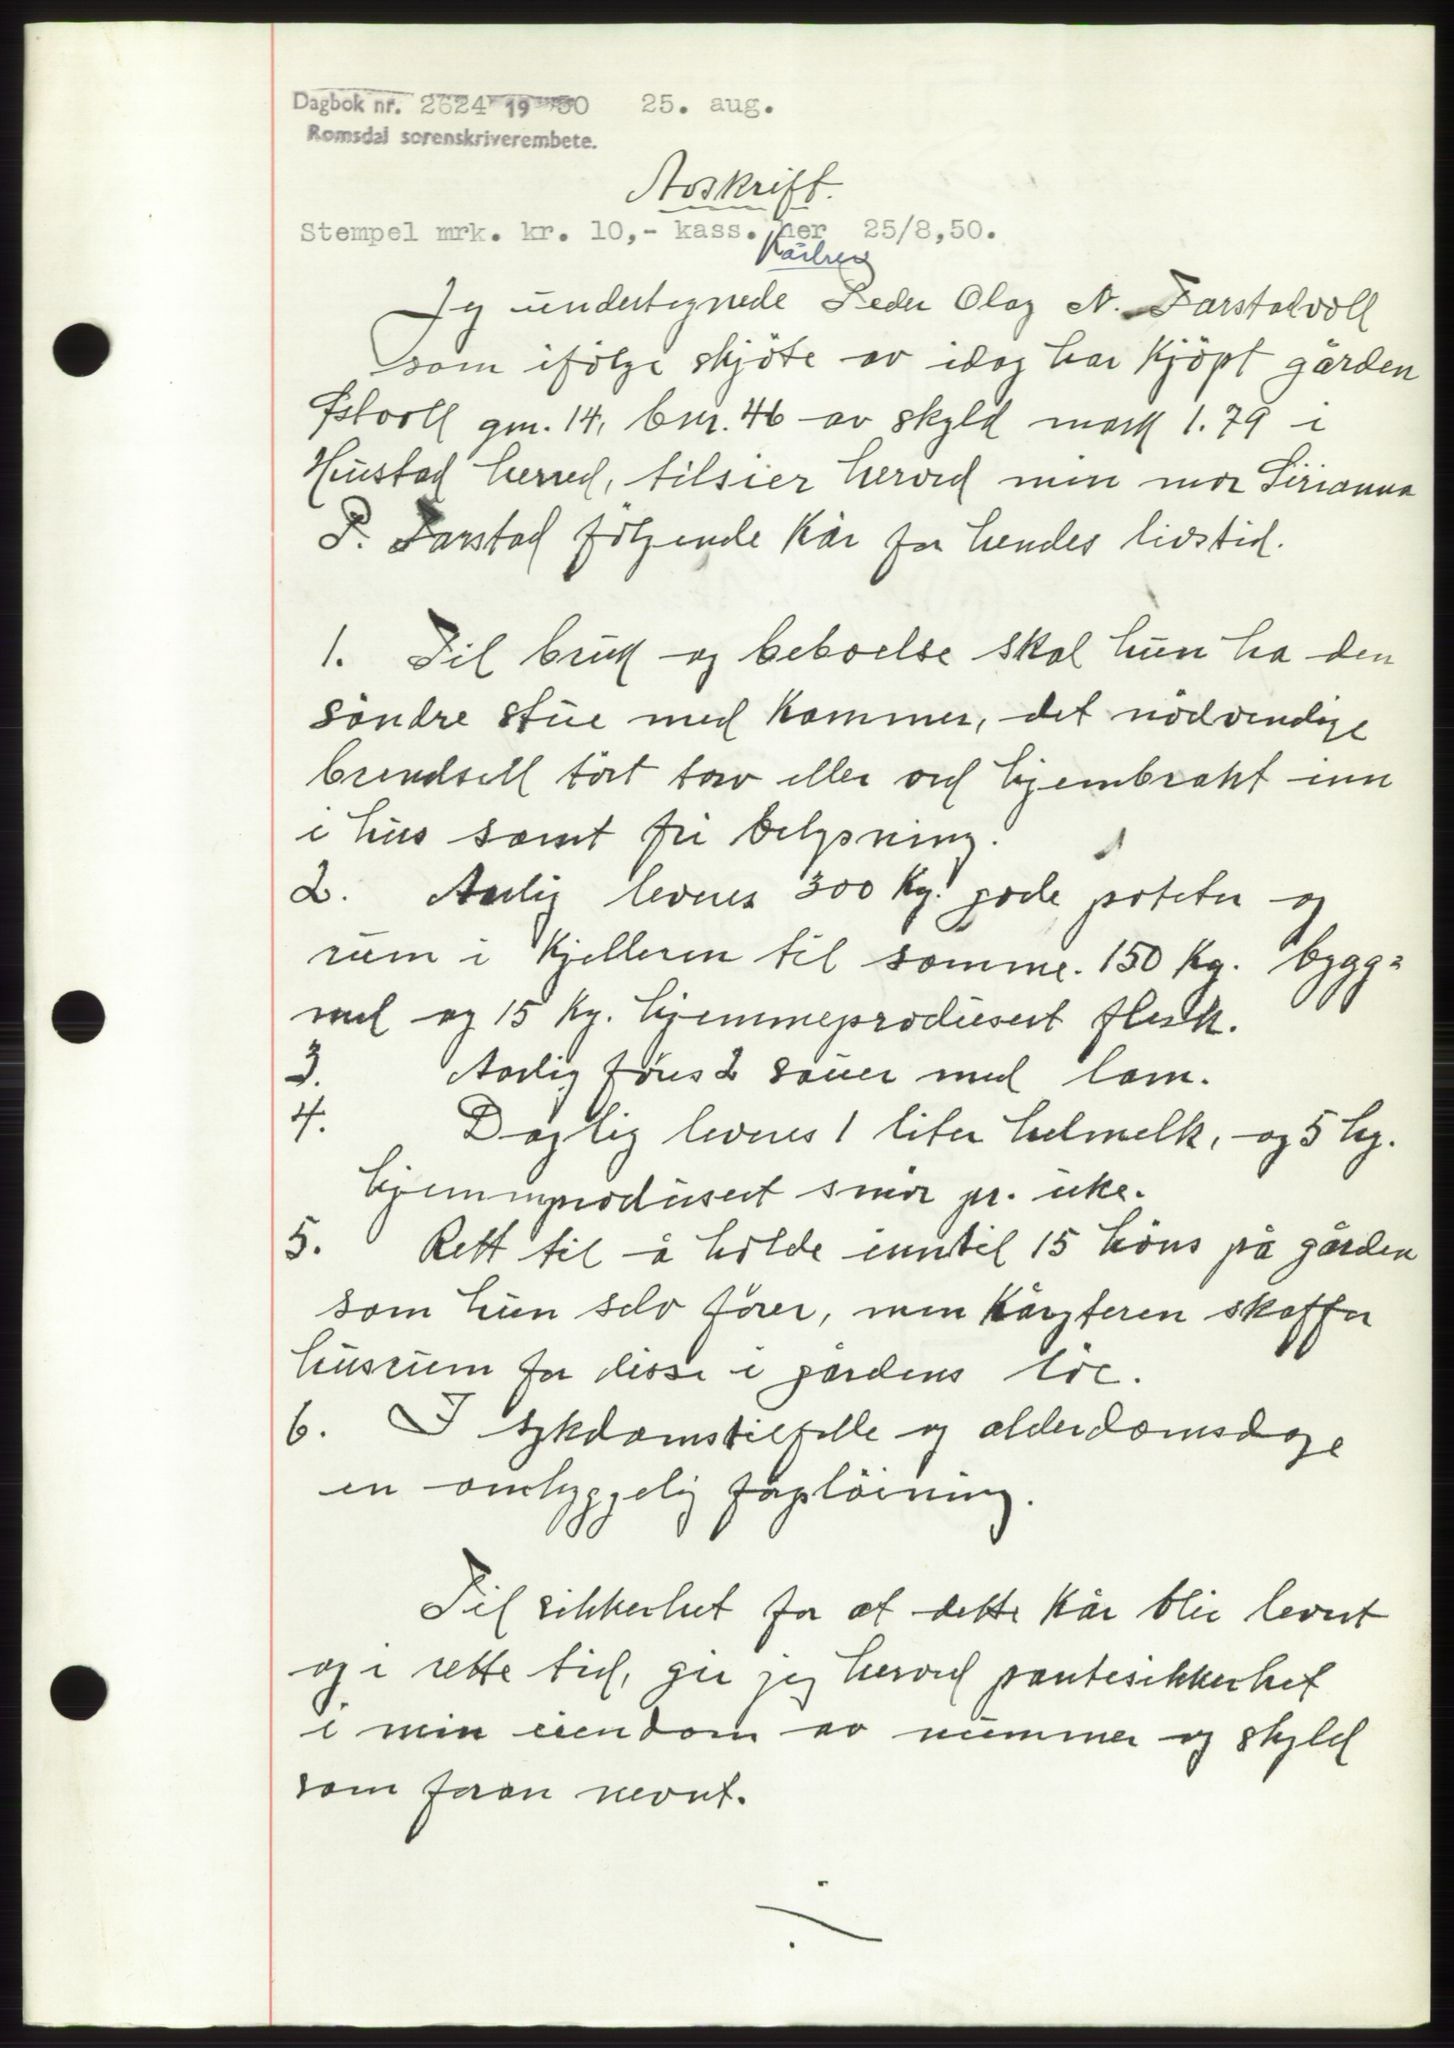 Dagbok nr. 2624 19 50 25. aug.
Romsdal sorenskriverembete.
Avskrift.
Stempel mrk. kr. 10,- kass. her 25/8,50.
Kårbrev
Jeg undertegnede Peder Olag N. Farstadvoll
som ifölge skjöte av idag har kjöpt gården
Østvoll gnr. 14, bnr. 46 av skyld mark 1.79 i
Hustad herred, tilsier herved min mor Sirianna
P. Farstad fölgende kår for hendes livstid.
1. Til bruk og beboelse skal hun ha den
söndre stue med kammer, det nödvendige
brendsell tört torv eller ved hjembrakt inn
i hus samt fri belysning.
2. Aarlig leveres 300 kg. gode poteter og
rum i kjelleren til samme. 150 kg. bygg=
mel og 15 kg. hjemmeprodusert flesk.
3. Aarlig föres 2 sauer med lam.
4. Daglig leveres 1 liter helmelk, og 5 hg.
hjemmprodusert smör pr. uke.
5. Rett til å holde inntil 15 höns på gården
som hun selv förer, men kåryteren skaffer
husrum for disse i gårdens löe.
6. I sykdomstilfelle og alderdomsdage
en omhyggelig forpleining.
Til sikkerhet for at dette kår blir levert
og i rette tid, gir jeg herved pantesikkerhet
i min eiendom av nummer og skyld
som foran nevnt.